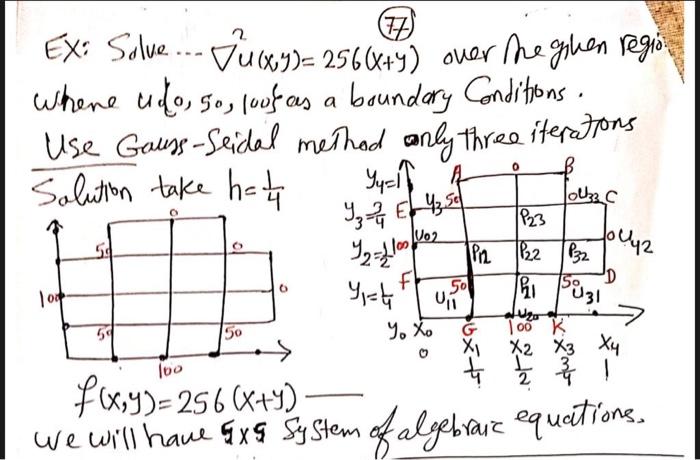 77
EX: Solve --- ∇²u(x,y)= 256(x+y) over the given region
where u{0, 50, 100} as a boundary Conditions.
Use Gauss-Seidal method only three iterations
Solution take h=1/4
0
50 0
100 0
50 50
100
y4=1 A 0 B
y3=3/4 E u3 50 0 U33 C
P23
y2=1/2 100 U02 P12 P22 P32 0 U42
y1=1/4 F U11 50 P21 50 U31 D
U20
y0 x0 G 100 K
0 x1 x2 x3 x4
1/4 1/2 3/4 1
f(x,y)=256(x+y) —
we will have 5x5 System of algebraic equations.